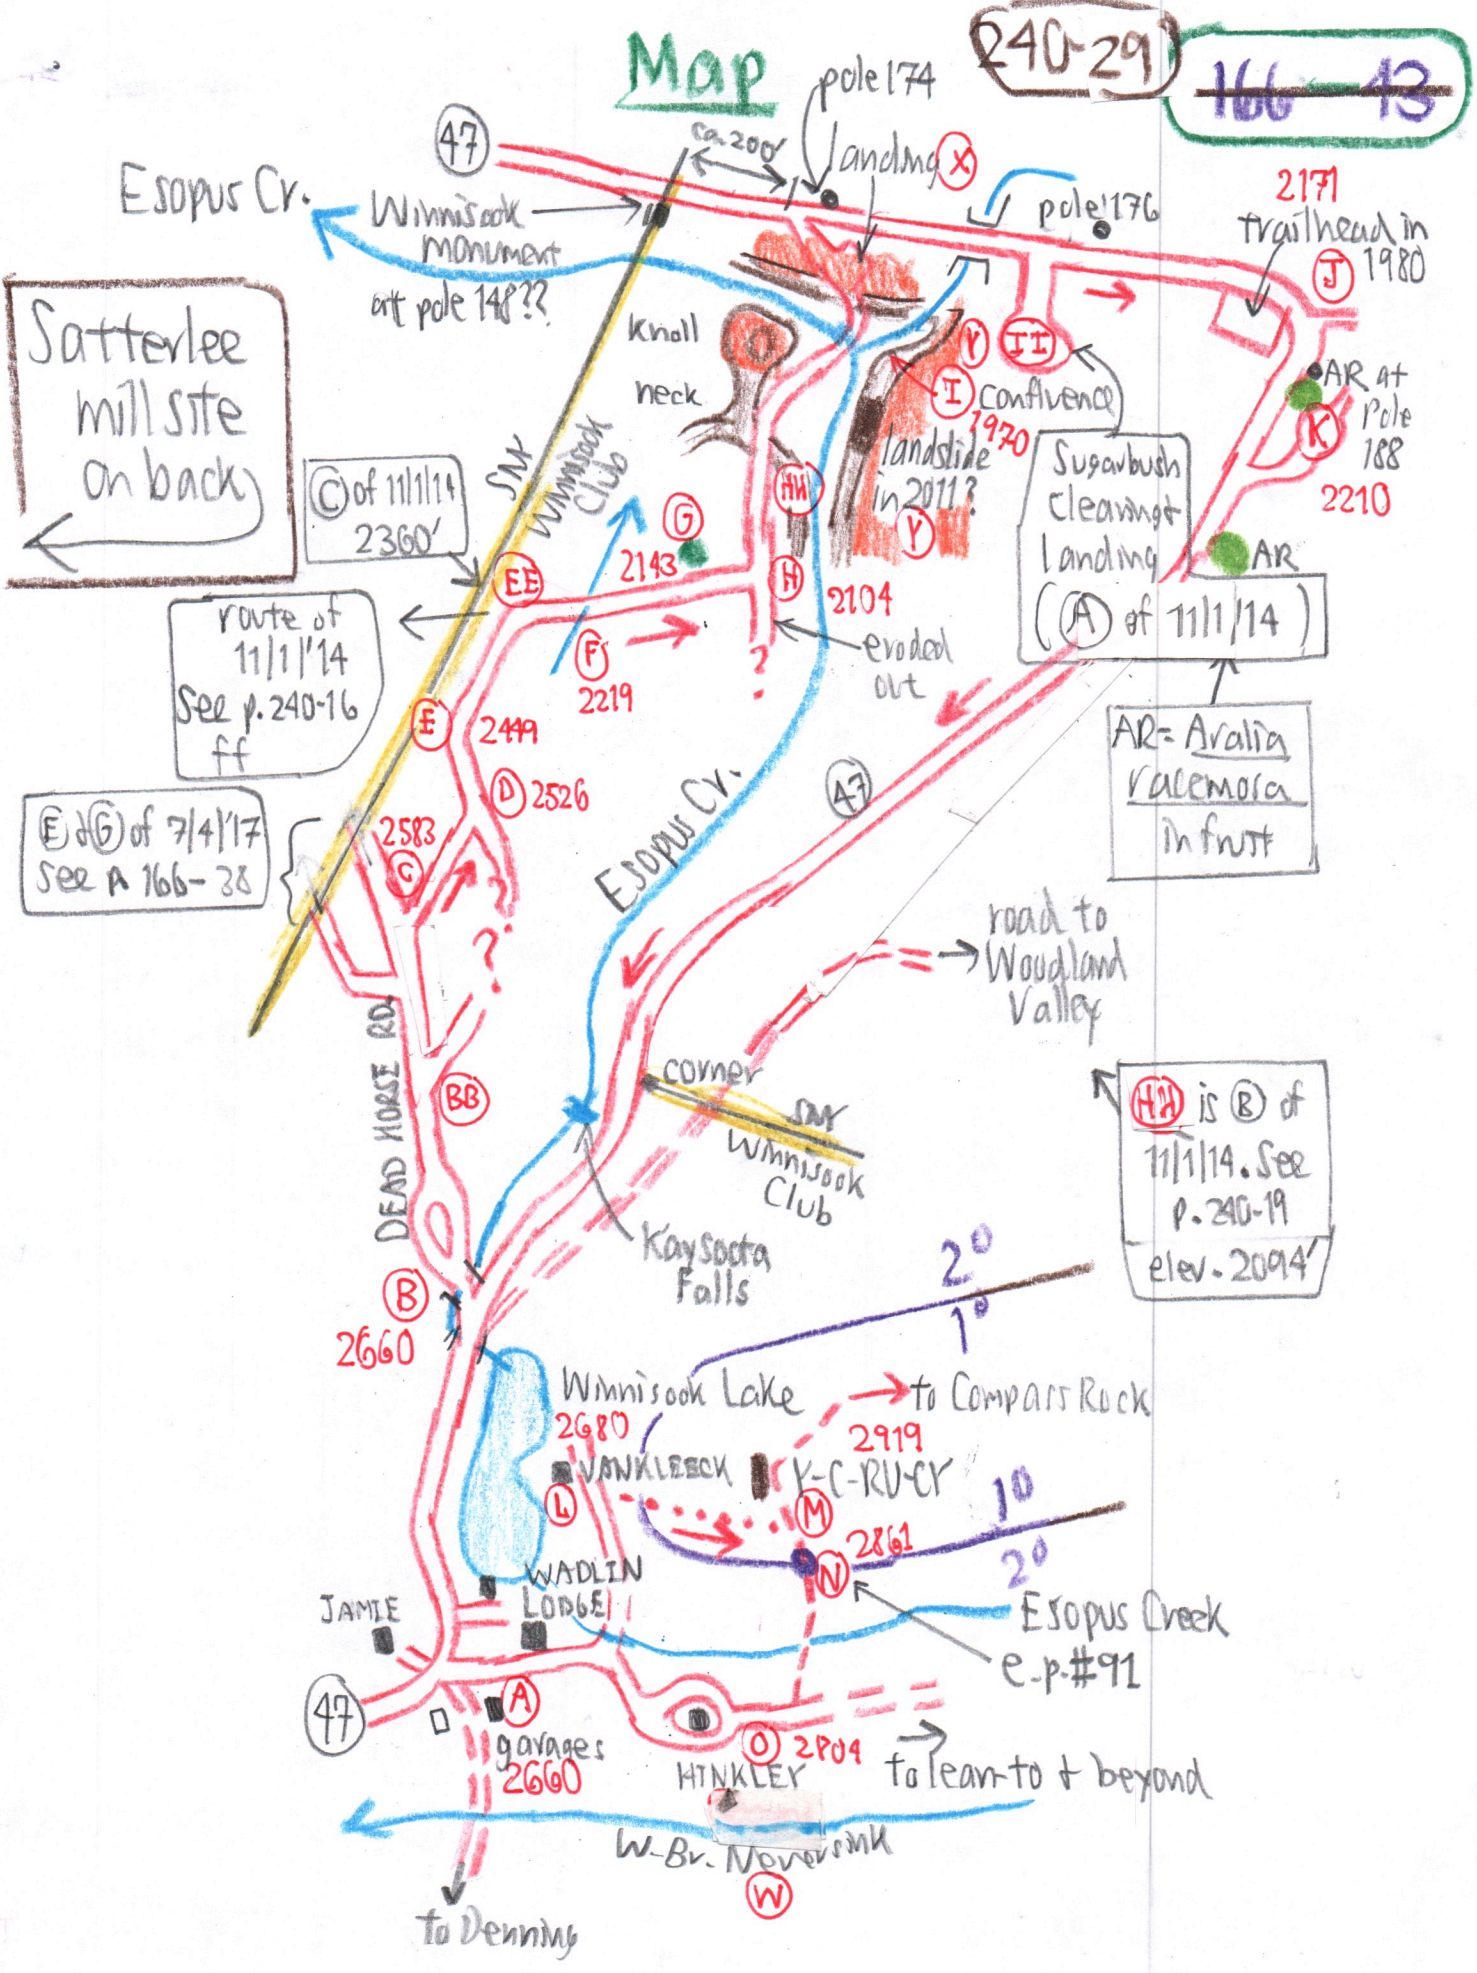 Map
240-29
166-43
pole 174
47
ca. 200'
landing X
Esopus Cr.
Winnisook
monument
att pole 148??
pole 176
2171
trailhead in
1980
J
Satterlee
mill site
on back
knoll
neck
Y
II
I
confluence
1970
landslide
in 2011?
Y
AR at
Pole
188
K
2210
AR
SNY
Winnisook
Club
C of 11/1/14
2360'
HH
G
2143
EE
H
2104
Sugarbush
clearing &
landing
(A of 11/1/14)
route of
11/1/'14
See p. 240-16
ff
F
2219
?
eroded
out
E
2449
AR= Aralia
racemosa
in fruit
D 2526
47
E & G of 7/4/'17
see p 166-38
2583
C
Esopus Cr.
?
road to
Woodland
Valley
DEAD HORSE RD.
BB
corner
SNY
Winnisook
Club
HH is B of
11/1/14. See
p. 240-19
elev. 2094'
Kaysoota
Falls
B
2660
2°
1°
Winnisook Lake
to Compass Rock
2680
2919
VANKLEECK
Y-C-RU-CY
L
M
1°
2861
N
2°
WADLIN
LODGE
JAMIE
Esopus Creek
e.p. #91
47
A
garages
2660
O 2804
HINKLEY
to lean-to & beyond
W-Br. Neversink
W
to Denning